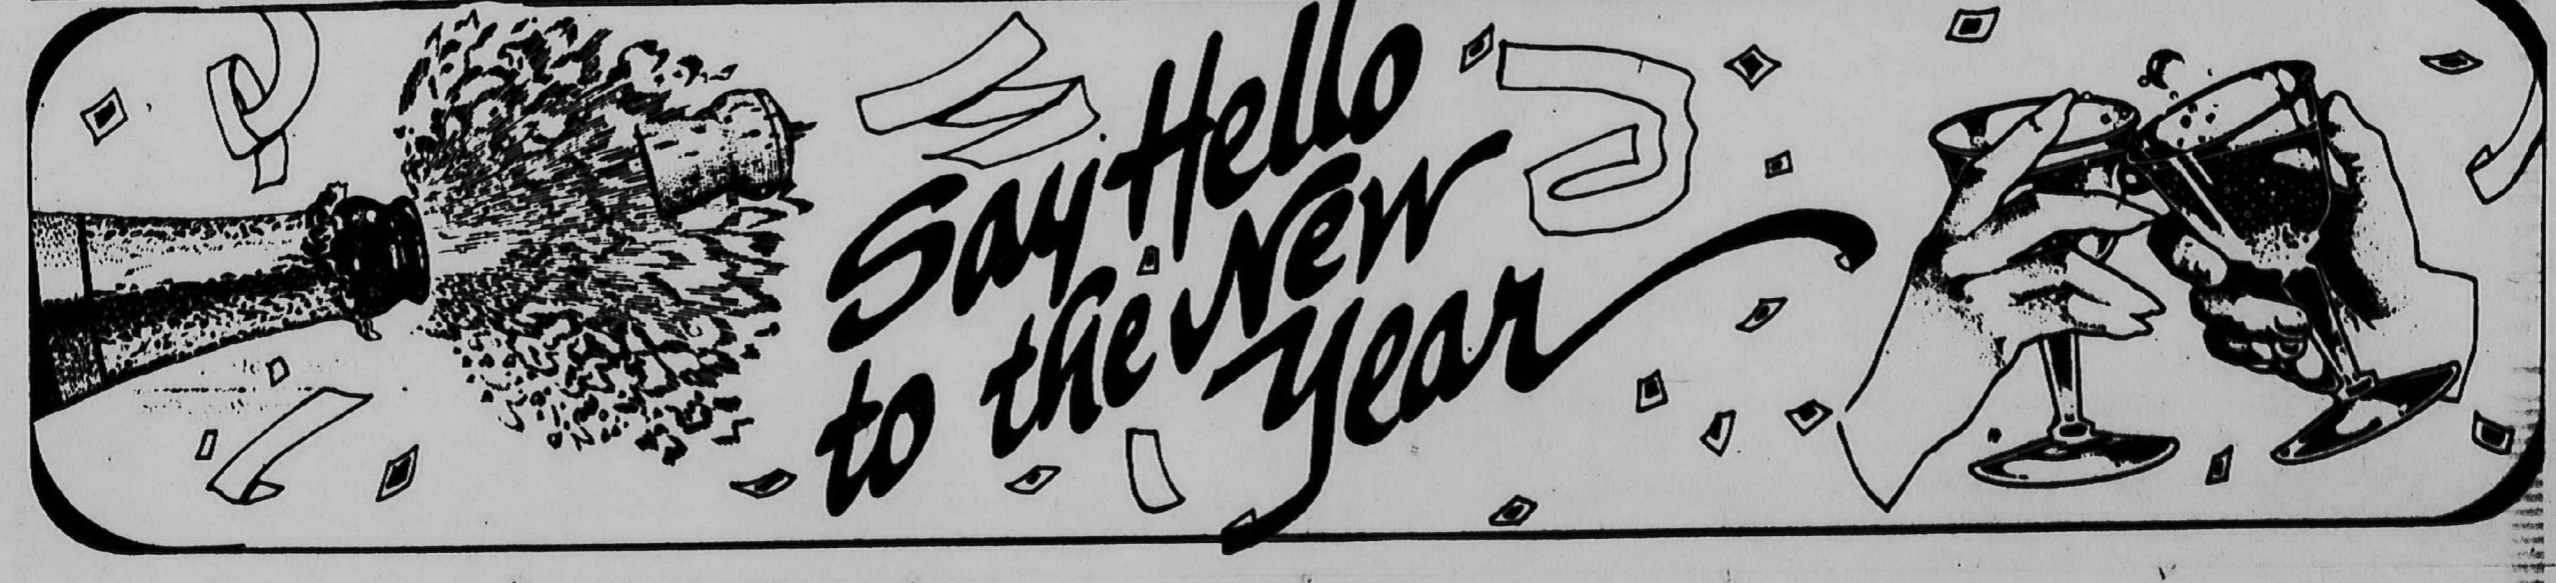 Say Hello
to the New
Year